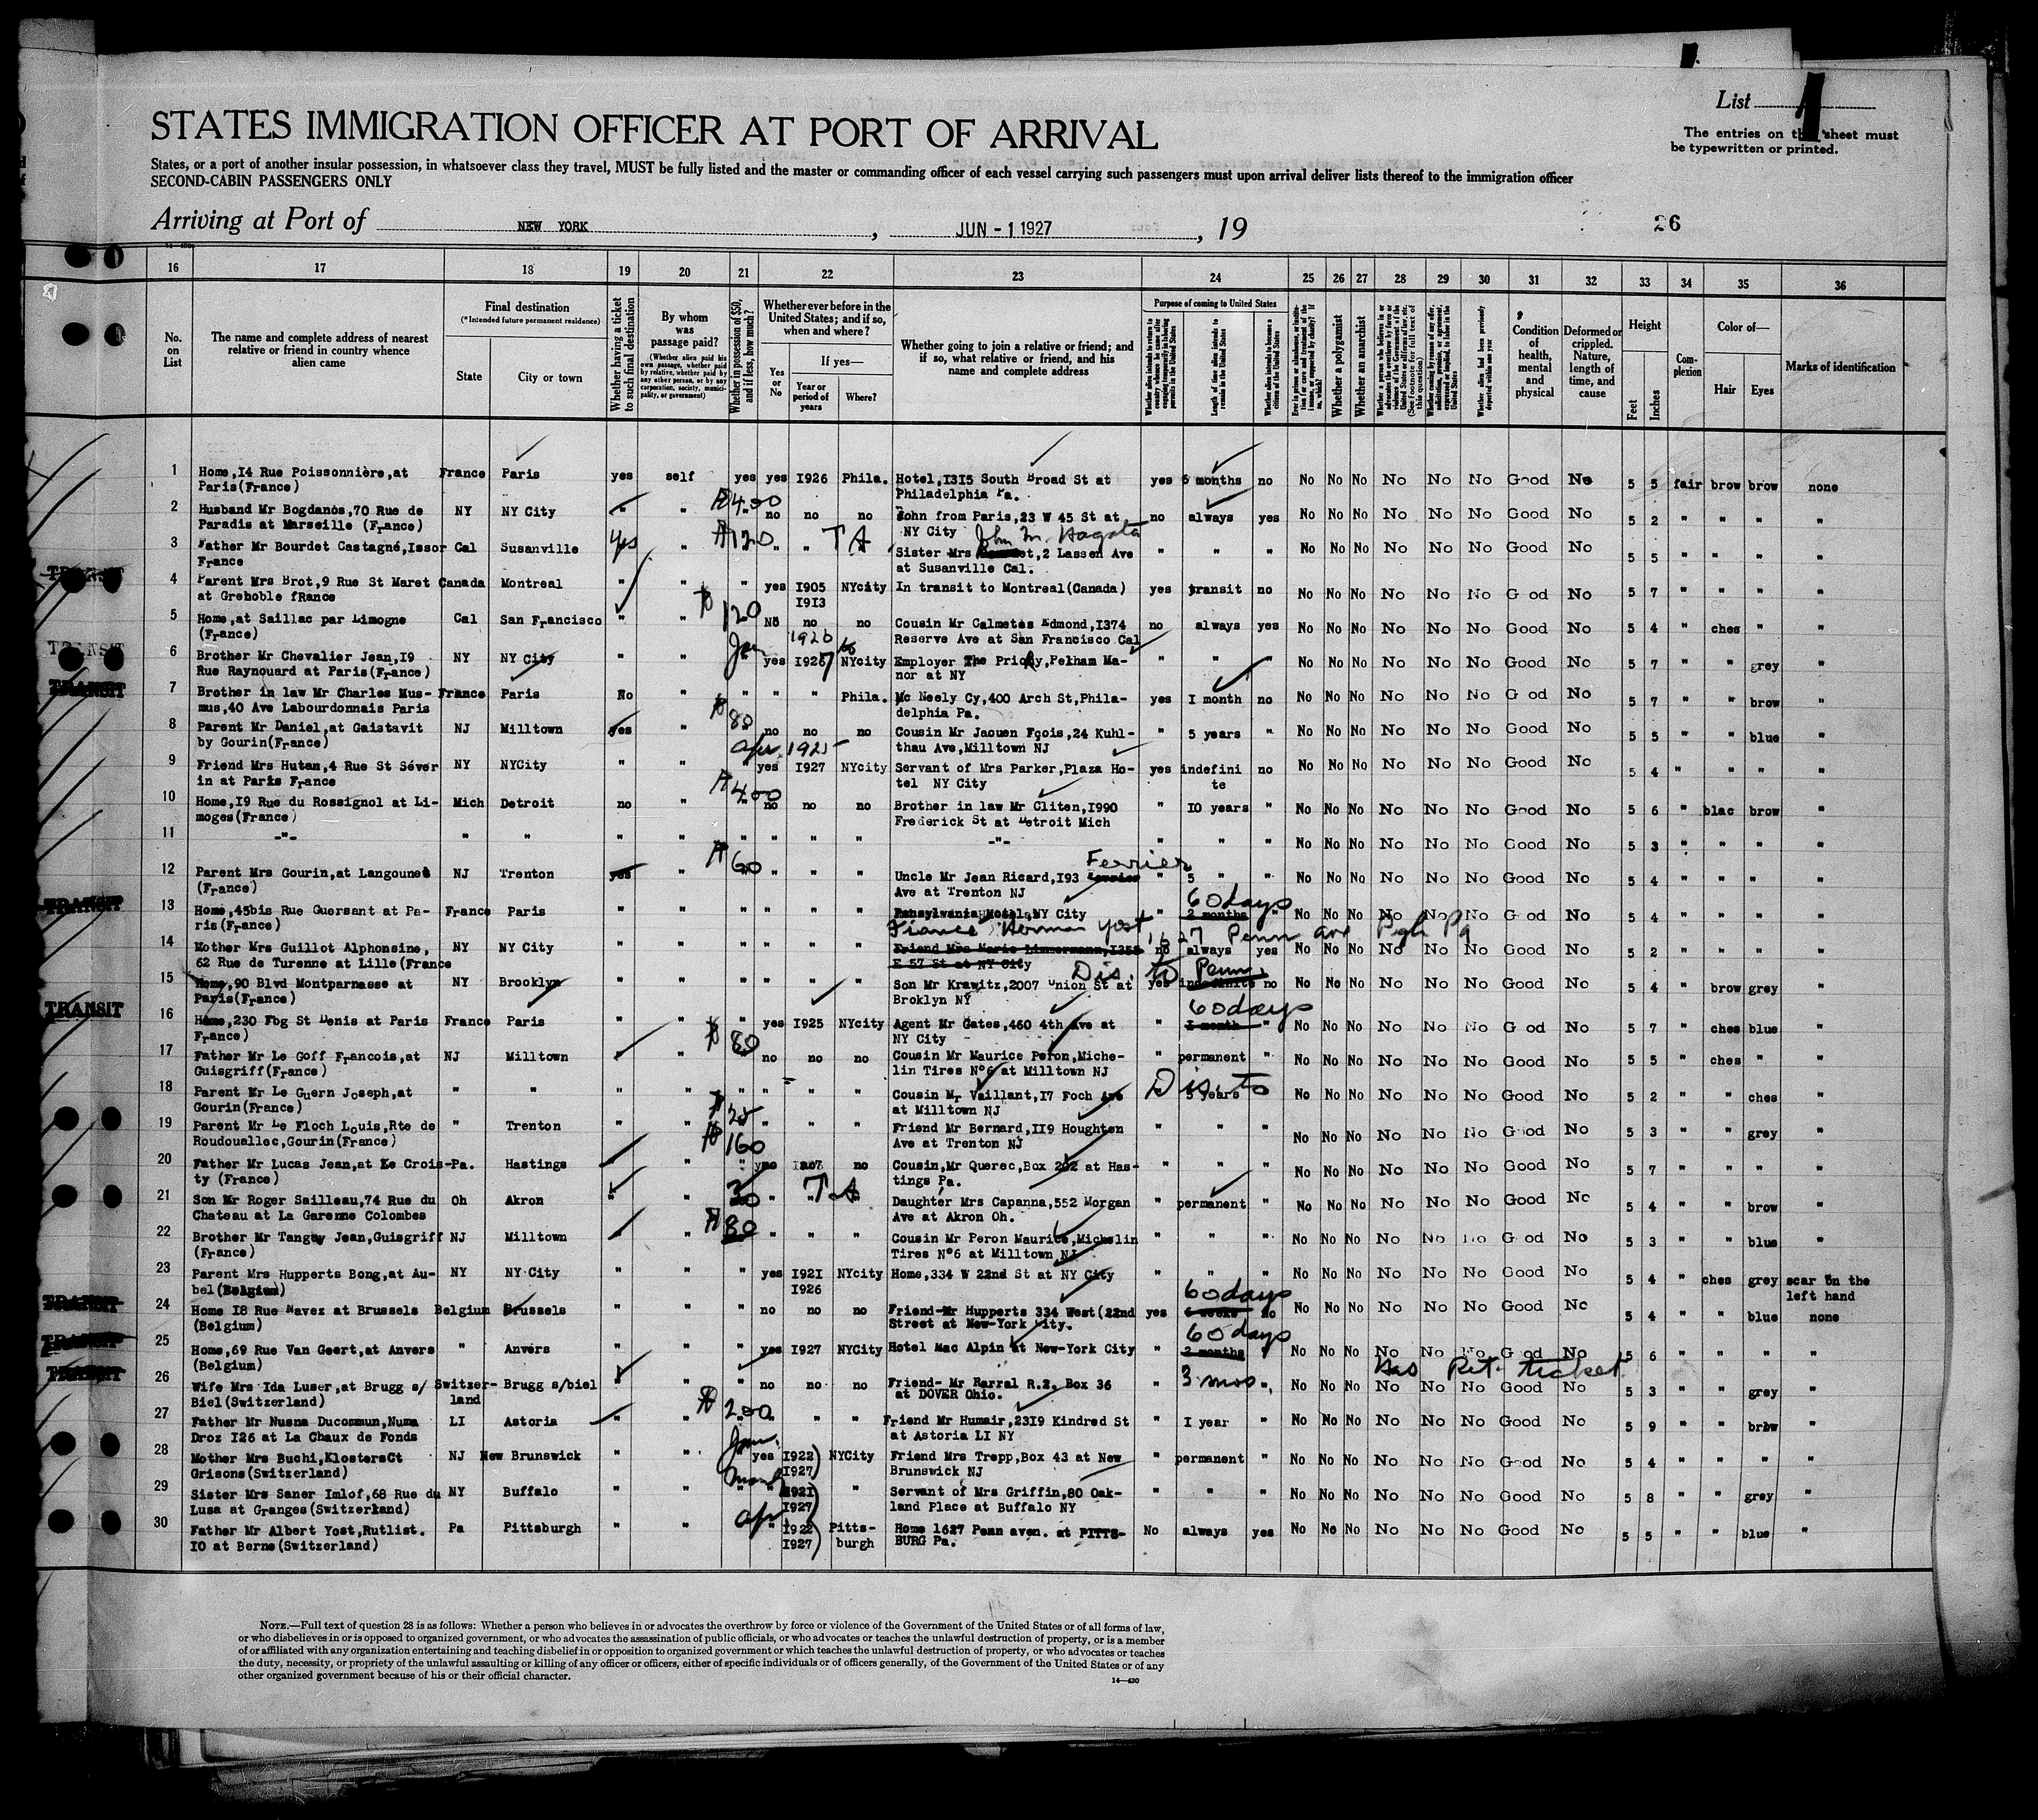 List 1
STATES IMMIGRATION OFFICER AT PORT OF ARRIVAL
The entries on this sheet must
be typewritten or printed.
States, or a port of another insular possession, in whatsoever class they travel, MUST be fully listed and the master or commanding officer of each vessel carrying such passengers must upon arrival deliver lists thereof to the immigration officer
SECOND-CABIN PASSENGERS ONLY
Arriving at Port of NEW YORK, JUN - 1 1927, 19
26
16 17 18 19 20 21 22 23 24 25 26 27 28 29 30 31 32 33 34 35 36
No. on List
The name and complete address of nearest relative or friend in country whence alien came
Final destination
(*Intended future permanent residence)
State
City or town
Whether having a ticket to such final destination
By whom was passage paid?
(Whether alien paid his own passage, whether paid by relative, whether paid by any other person, or by any corporation, society, municipality, or government)
Whether in possession of $50, and if less, how much?
Whether ever before in the United States; and if so, when and where?
Yes or No
If yes—
Year or period of years
Where?
Whether going to join a relative or friend; and if so, what relative or friend, and his name and complete address
Purpose of coming to United States
Length of time alien intends to remain in the United States
Whether alien intends to become a citizen of the United States
Whether a polygamist
Whether an anarchist
Condition of health, mental and physical
Deformed or crippled. Nature, length of time, and cause
Height
Feet
Inches
Complexion
Color of—
Hair
Eyes
Marks of identification
1 Home,14 Rue Poissonnière,at France Paris yes self yes yes 1926 Phila. Hotel,1315 South Broad St at yes 6 months no No No No No No No Good No 5 5 fair brow brow none
Paris(France) Philadelphia Pa.
2 Husband Mr Bogdanos,70 Rue de NY NY City " " $400 no no no John from Paris,23 W 45 St at no always yes No No No No No No Good No 5 2 " " " "
Paradis at Marseille (France) NY City John M. Hagata
3 Father Mr Bourdet Castagné,Issor Cal Susanville yes " $120 " " TA Sister Mrs 2 Lassen Ave " " " No No No No No No Good No 5 5 " " " "
France at Susanville Cal.
TRANSIT
4 Parent Mrs Brot,9 Rue St Maret Canada Montreal " " " yes 1905 NYcity In transit to Montreal(Canada) yes transit no No No No No No No Good No 5 7 " " " "
at Grenoble fRance 1913
5 Home,at Saillac par Limogne Cal San Francisco " " $120 No no no Cousin Mr Calmetes Edmond,1374 no always yes No No No No No No Good No 5 4 " ches " "
(France) Reserve Ave at San Francisco Cal
TRANSIT
6 Brother Mr Chevalier Jean,19 NY NY City " " Jan yes 1926 1927 NYcity Employer The Priory,Pelham Ma- " " " No No No No No No Good No 5 7 " " grey "
Rue Raynouard at Paris(France) nor at NY
TRANSIT
7 Brother in law Mr Charles Mus- France Paris No " " " " Phila. Mc Neely Cy,400 Arch St,Phila- yes 1 month no No No No No No No Good No 5 7 " " brow "
mus,40 Ave Labourdonnais Paris delphia Pa.
8 Parent Mr Daniel,at Gaistavit NJ Milltown yes " $80 no no no Cousin Mr Jaouen Fçois,24 Kuhl- " 5 years " No No No No No No Good No 5 5 " " blue "
by Gourin(France) Apr 1925 thau Ave,Milltown NJ
9 Friend Mrs Hutan,4 Rue St Séver NY NYCity " " " yes 1927 NYcity Servant of Mrs Parker,Plaza Ho- yes indefini no No No No No No No Good No 5 4 " " " "
in at Paris France tel NY City te
10 Home,19 Rue du Rossignol at Li- Mich Detroit no " $400 no no no Brother in law Mr Cliten,1990 " 10 years " No No No No No No Good No 5 6 " blac brow "
moges(France) Frederick St at Detroit Mich
11 -"- " " " " " " " " -"- " " " No No No No No No Good No 5 3 " " " "
12 Parent Mrs Gourin,at Langounet NJ Trenton yes " $60 " " " Uncle Mr Jean Ricard,193 Ferrier " 5 " " No No No No No No Good No 5 4 " " " "
(France) Ave at Trenton NJ
TRANSIT
13 Home,45bis Rue Guersant at Pa- France Paris " " " " " " Pensylvania Hotel,NY City " 2 months 60 days " No No No No No No Good No 5 4 " " " "
ris(France) Fiance Herman Yost, 1627 Penn ave Pgh Pa
14 Mother Mrs Guillot Alphonsine, NY NY City " " " " " " Friend Mrs Marie Limmermann,1355 no always yes No No No No No No Good No 5 2 " " " "
62 Rue de Turenne at Lille(France E 57 St at NY City Dis. to Penn.
15 Home,90 Blvd Montparnasse at NY Brooklyn " " " " " " Son Mr Krawitz,2007 Union St at yes indefinite no No No No No No No Good No 5 4 " brow grey "
Paris(France) Broklyn NY
TRANSIT
16 Home,230 Fbg St Denis at Paris France Paris " " " yes 1925 NYcity Agent Mr Gates,460 4th Ave at " 1 month 60 days " No No No No No No Good No 5 7 " ches blue "
France) NY City
17 Father Mr Le Goff Francois,at NJ Milltown " " $80 no no no Cousin Mr Maurice Peron,Miche- " permanent " No No No No No No Good No 5 5 " ches " "
Guisgriff(France) lin Tires N°6 at Milltown NJ
18 Parent Mr Le Guern Joseph,at " " " " " " " " Cousin Mr Vaillant,17 Foch Ave Dis. to " 5 years " No No No No No No Good No 5 2 " " ches "
Gourin(France) at Milltown NJ
19 Parent Mr Le Floch Louis,Rte de " Trenton " " $25 " " " Friend Mr Bernard,119 Houghten " " " No No No No No No Good No 5 3 " " grey "
Roudouallec,Gourin(France) $160 Ave at Trenton NJ
20 Father Mr Lucas Jean,at Ke Crois- Pa. Hastings " " no Cousin,Mr Querec,Box 202 at Has- " " " No No No No No No Good No 5 7 " " " "
ty (France) tings Pa.
21 Son Mr Roger Sailleau,74 Rue du Oh Akron " " 30 " TA Daughter Mrs Capanna,552 Morgan " permanent " No No No No No No Good No 5 4 " " brow "
Chateau at La Garenne Colombes Ave at Akron Oh.
22 Brother Mr Tanguy Jean,Guisgriff NJ Milltown " " $80 " " " Cousin Mr Peron Maurice,Michelin " " " No No No No No No Good No 5 3 " " blue "
(France) Tires N°6 at Milltown NJ
23 Parent Mrs Hupperts Bong,at Au- NY NY City " " " yes 1921 NYcity Home,334 W 22nd St at NY City " " " No No No No No No Good No 5 4 " ches grey scar on the
bel(Belgium) 1926 left hand
TRANSIT
24 Home 18 Rue Navez at Brussels Belgium Brussels " " " no no no Friend-Mr Hupperts 334 West(22nd yes 6 weeks 60 days no No No No No No No Good No 5 4 " " blue none
(Belgium) Street at New-York City.
TRANSIT
25 Home,69 Rue Van Geert,at Anvers " Anvers " " " yes 1927 NYCity Hotel Mac Alpin at New-York City " 2 months 60 days " No No No No No No Good No 5 6 " " " "
(Belgium) Has Ret. ticket
TRANSIT
26 Wife Mrs Ida Luser,at Brugg s/ Switzer- Brugg s/biel " " " no no no Friend- Mr Harral R.2. Box 36 " 3 mos " No No No No No No Good No 5 3 " " grey "
Biel(Switzerland) land at DOVER Ohio.
27 Father Mr Nusna Ducommun,Numa LI Astoria " " $200 " " " Friend Mr Humair,2319 Kindred St " 1 year " No No No No No No Good No 5 9 " " brow "
Droz 126 at La Chaux de Fonds at Astoria LI NY
28 Mother Mrs Buchi,KlostersCt NJ New Brunswick " " Jan. yes 1922) NYCity Friend Mrs Trepp,Box 43 at New " permanent " No No No No No No Good No 5 4 " " " "
Grisons(Switzerland) 1927) Brunswick NJ
29 Sister Mrs Saner Imlof,68 Rue du NY Buffalo " " March " 1921 " Servant of Mrs Griffin,80 Oak- " " " No No No No No No Good No 5 8 " " grey "
Lusa at Granges(Switzerland) 1927) land Place at Buffalo NY
30 Father Mr Albert Yost,Rutlist. Pa Pittsburgh " " Apr " 1922 Pitts- Home 1627 Penn aven. at PITTS- No always yes No No No No No No Good No 5 5 " " blue "
10 at Berne(Switzerland) 1927) burgh BURG Pa.
NOTE.—Full text of question 28 is as follows: Whether a person who believes in or advocates the overthrow by force or violence of the Government of the United States or of all forms of law,
or who disbelieves in or is opposed to organized government, or who advocates the assassination of public officials, or who advocates or teaches the unlawful destruction of property, or is a member
of or affiliated with any organization entertaining and teaching disbelief in or opposition to organized government or which teaches the unlawful destruction of property, or who advocates or teaches
the duty, necessity, or propriety of the unlawful assaulting or killing of any officer or officers, either of specific individuals or of officers generally, of the Government of the United States or of any
other organized government because of his or their official character.
14—430